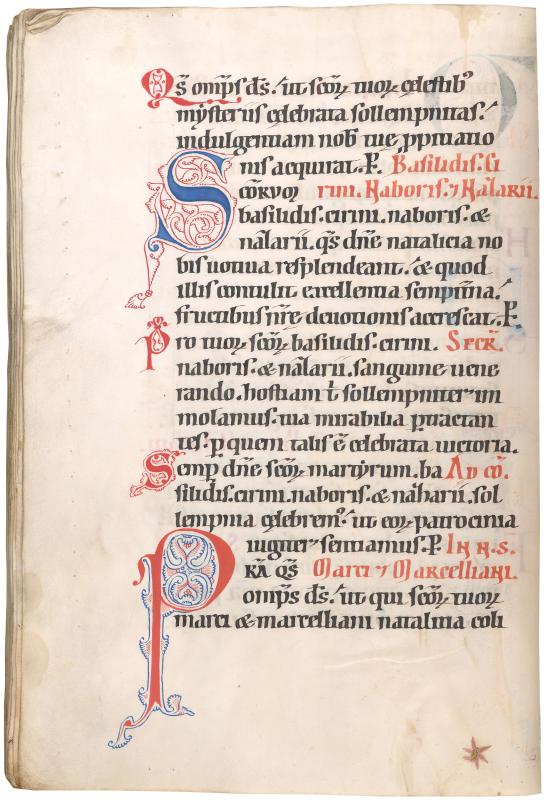 Qs̄ omp̄s ds̄. ut scōꝝ tuoꝝ cęlestibꝰ
mysteriis cęlebrata sollempnitas.
indulgentiam nob̄ tuę ꝓpitiatio
nis acquirat. P. Basilidis. Ci
Scōꝝ tuoꝝ rini. Naboris. ⁊ Nālarii.
basilidis. cirini. naboris. &
nālarii. qs̄ dn̄e natalicia no
bis uotiua resplendeant. & quod
illis contulit excellentia sempit̄na.
fructibus nr̄ę deuotionis accrescat. P.
Pro tuoꝝ scōꝝ basilidis. cirini. Secr̄.
naboris. & nālarii. sanguine uene
rando. hostiam t̄ sollempniter im
molamus. tua mirabilia ptractan
tes. p quem talis ē celebrata uictoria.
Semp dn̄e scōꝝ martyrum. ba Ad cō.
silidis. cirini. naboris. & nāharii. sol
lempnia cęlebremꝰ. ut eoꝝ patrocinia
iugiter sentiamus. P. In n. s.
PRA qs̄ Marci ⁊ Marcelliani.
omp̄s ds̄. ut qui scōꝝ tuoꝝ
marci & marcelliani natalitia coli